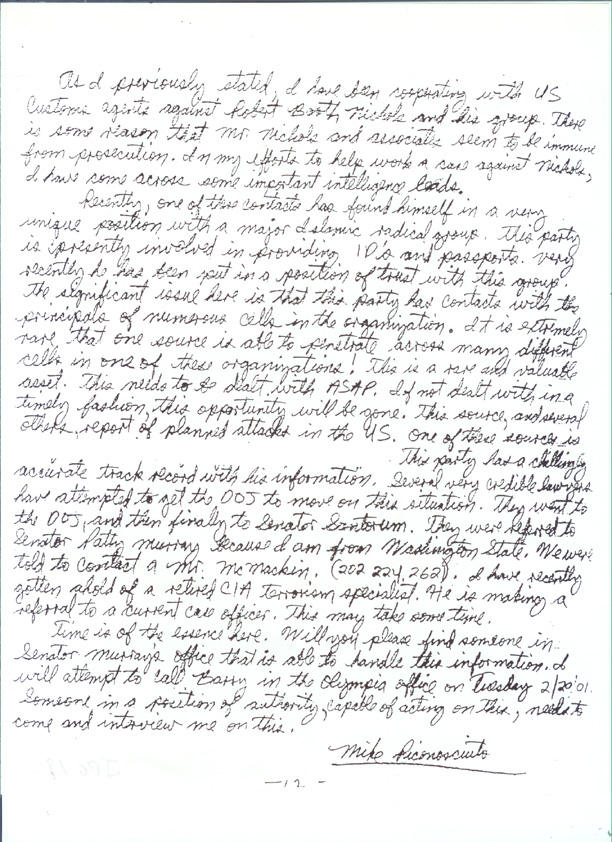 As I previously stated, I have been cooperating with US
Customs agents against Robert Booth Nichols and his group. There
is some reason that Mr. Nichols and associates seem to be immune
from prosecution. In my efforts to help work a case against Nichols,
I have come across some important intelligence leads.
Recently, one of these contacts has found himself in a very
unique position with a major Islamic radical group. This party
is presently involved in providing ID's and passports. Very
recently he has been put in a position of trust with this group.
The significant issue here is that this party has contacts with the
principals of numerous cells in the organization. It is extremely
rare, that one source is able to penetrate across many different
cells in one of these organizations! This is a rare and valuable
asset. This needs to be dealt with ASAP. If not dealt with in a
timely fashion, this opportunity will be gone. This source, and several
others, report of planned attacks in the US. One of these sources is
This party has a chillingly
accurate track record with his information. Several very credible lawyers
have attempted to get the DOJ to move on this situation. They went to
the DOJ, and then finally to Senator Santorum. They were referred to
Senator Patty Murray because I am from Washington State. We were
told to contact a Mr. McMackin. (202 224 2621). I have recently
gotten ahold of a retired CIA terrorism specialist. He is making a
referral to a current case officer. This may take some time.
Time is of the essence here. Will you please find someone in
Senator Murray's office that is able to handle this information. I
will attempt to call Barry in the Olympia office on Tuesday 2/20/01.
Someone in a position of authority, capable of acting on this, needs to
come and interview me on this.
Mike Riconosciuto
—12—